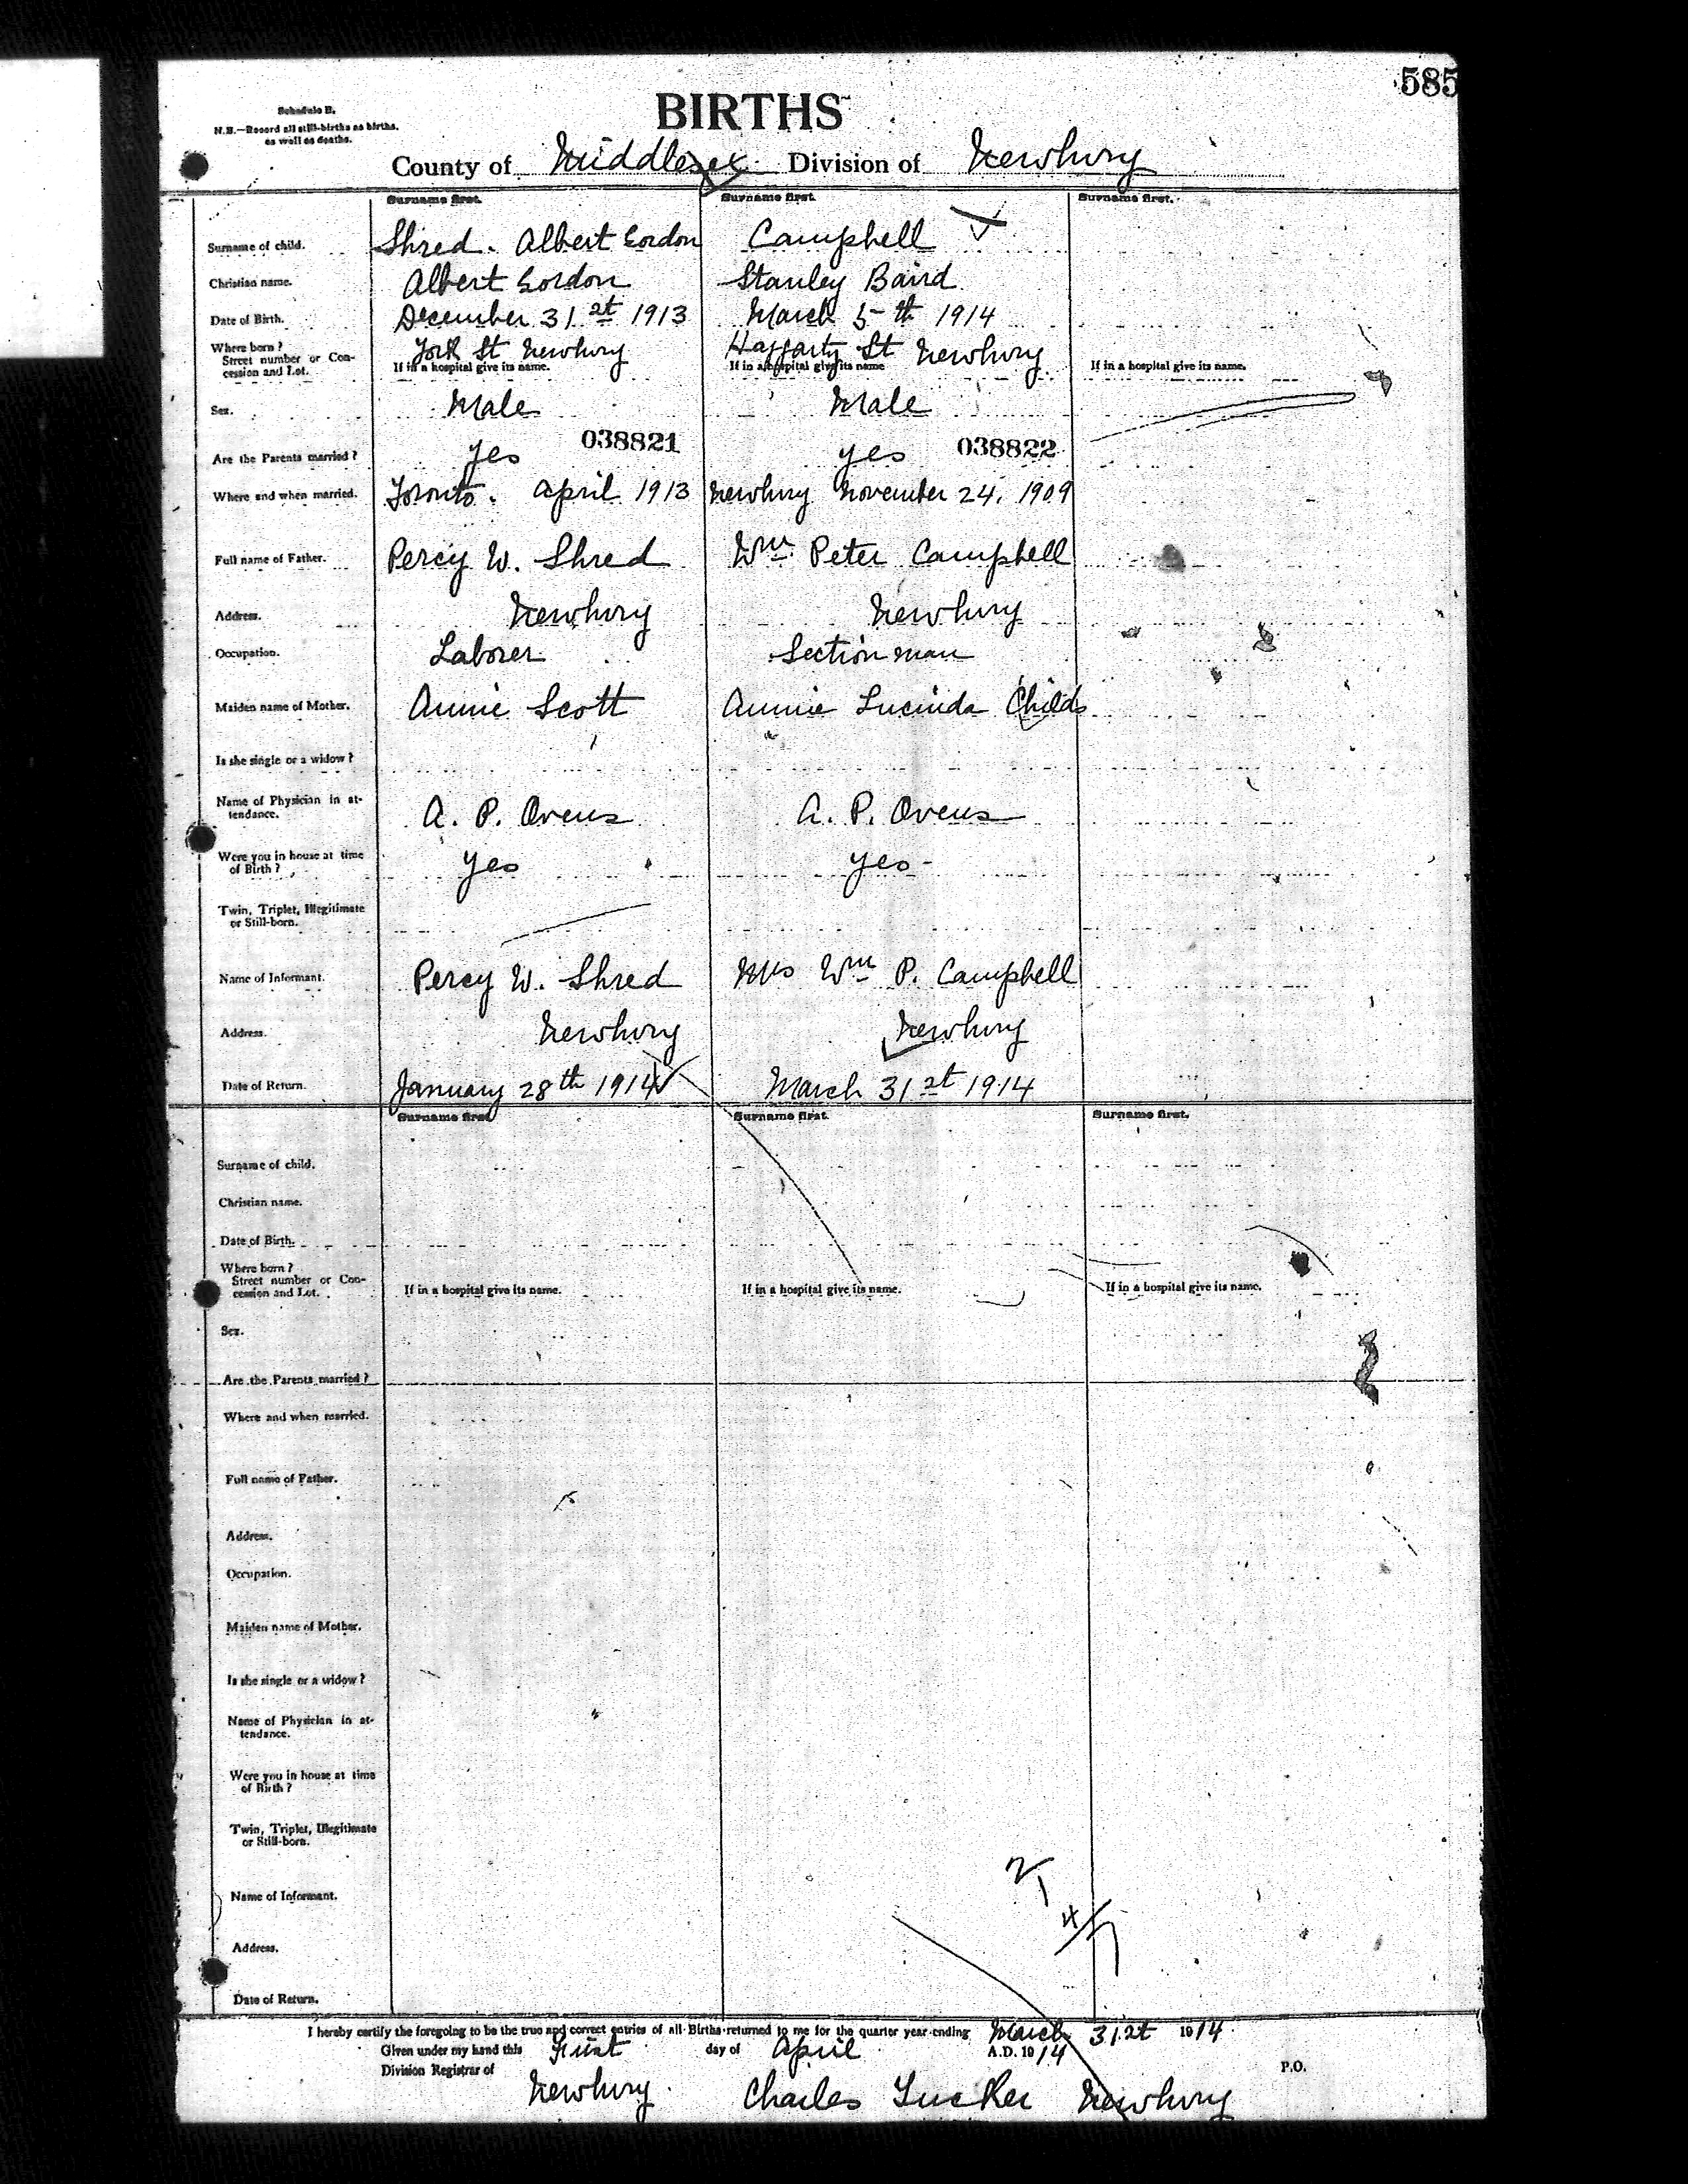 585
Schedule B.
N.B.—Record all still-births as births,
as well as deaths.
BIRTHS
County of Middlesex Division of Newbury
Surname first. Surname first. Surname first.
Surname of child. Shred. Albert Gordon Campbell
Christian name. Albert Gordon Stanley Baird
Date of Birth. December 31st 1913 March 5th 1914
Where born? York St Newbury Haggarty St Newbury
Street number or Con-
cession and Lot. If in a hospital give its name. If in a hospital give its name If in a hospital give its name.
Sex. Male Male
038821 038822
Are the Parents married? yes yes
Where and when married. Toronto. April 1913 Newbury November 24, 1909
Full name of Father. Percy W. Shred Wm Peter Campbell
Address. Newbury Newbury
Occupation. Laborer Section man
Maiden name of Mother. Annie Scott Annie Lucinda Childs
Is she single or a widow?
Name of Physician in at-
tendance. A. P. Ovens A. P. Ovens
Were you in house at time
of Birth? yes yes -
Twin, Triplet, Illegitimate
or Still-born.
Name of Informant. Percy W. Shred Mrs Wm P. Campbell
Address. Newbury Newbury
Date of Return. January 28th 1914 March 31st 1914
Surname first. Surname first. Surname first.
Surname of child.
Christian name.
Date of Birth.
Where born?
Street number or Con-
cession and Lot. If in a hospital give its name. If in a hospital give its name. If in a hospital give its name.
Sex.
Are the Parents married?
Where and when married.
Full name of Father.
Address.
Occupation.
Maiden name of Mother.
Is she single or a widow?
Name of Physician in at-
tendance.
Were you in house at time
of Birth?
Twin, Triplet, Illegitimate
or Still-born.
Name of Informant.
Address.
Date of Return.
I hereby certify the foregoing to be the true and correct entries of all Births returned to me for the quarter year ending March 31st 1914
Given under my hand this First day of April A.D. 1914
Division Registrar of P.O.
Newbury. Charles Tucker Newbury